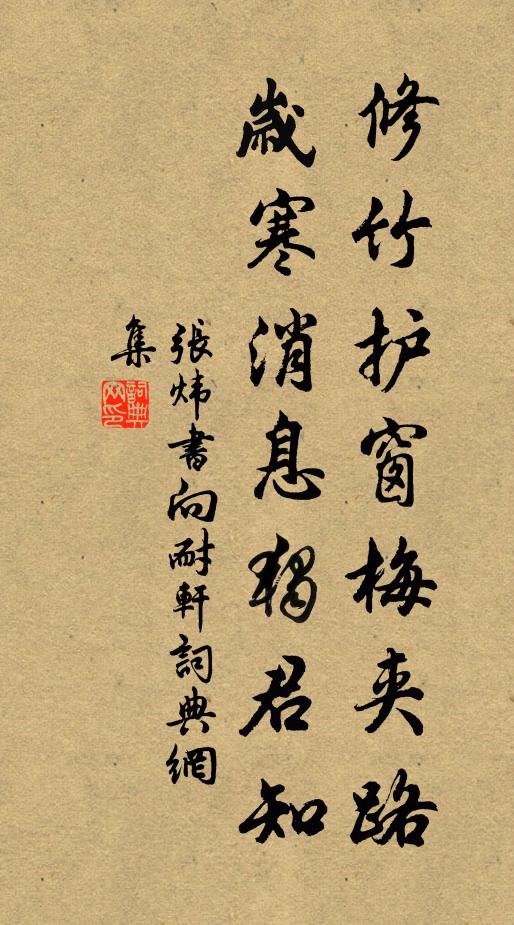 修竹护窗梅夹路
歲寒消息獨君知
張炜書向耐軒詞典網
集
詞典
网印